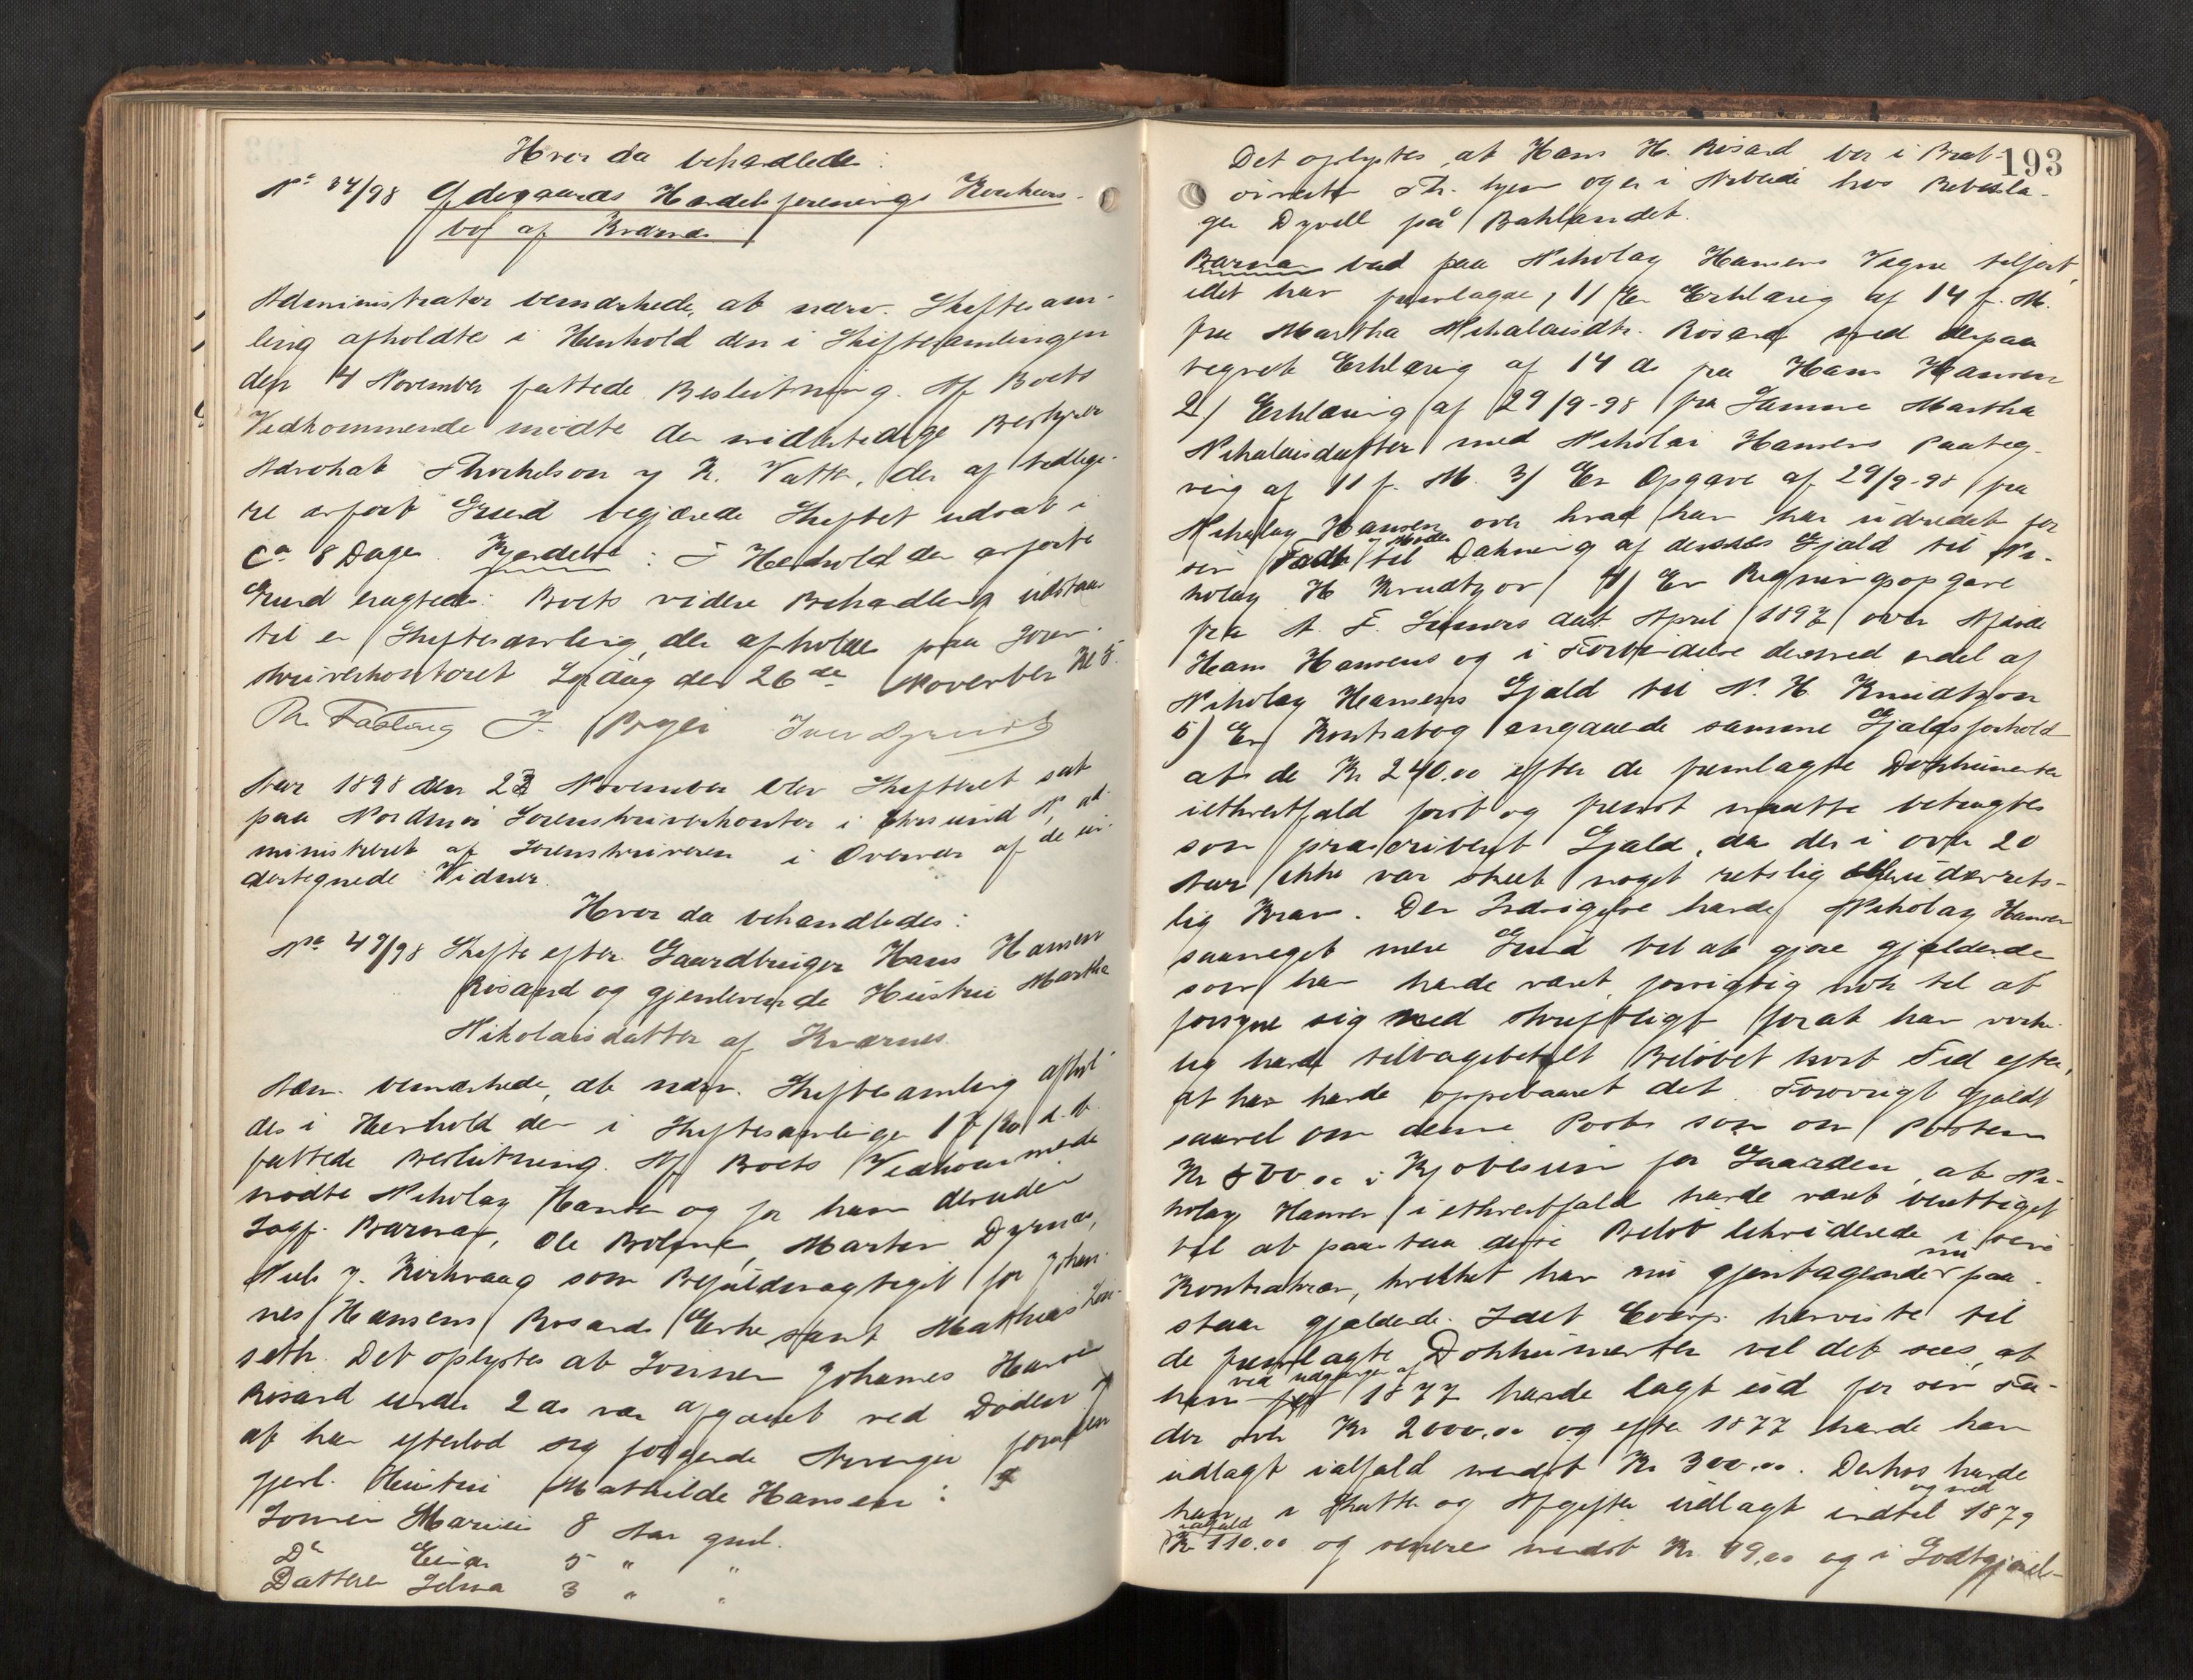 Hvor da behandledes:
No 34/98 Ødegaards Handelsforenings Konkurs-
bo af Kværnes
Administrator bemærkede, at nærv. Skiftesam-
ling afholdtes i Henhold den i Skiftesamlingen
den 14 November fattede Beslutning. Af Boets
Vedkommende mødte den midlertidige Bestyrer
Advokat Thorkelson og K. Vatten, der af tidlige-
re anført Grund begjærede Skiftet udsat i
ca 8 Dage. Kjendelse: I Henhold den anførte
Grund eragtedes: Boets videre Behandling udstaar
til en Skiftesamling, der afholdes paa Soren-
skriverkontoret Lørdag den 26de November Kl 5.
Aar 1898 den 23 November blev Skifteret sat
paa Nordmør Sorenskriverkontor i Chrsund N, ad-
ministreret af Sorenskriveren i Overvær af de un-
dertegnede Vidner.
Hvor da behandledes:
No 49/98 Skifte efter Gaardbruger Hans Hansen
Røsand og gjenlevende Hustru Martha
Nikolaisdatter af Kværnes
Adm. bemærkede, at nærv. Skiftesamling afhol-
des i Henhold den i Skiftesamlingen
fattede Beslutning. Af Boets Vedkommende
mødte Nikolay Hansen og for ham desuden
Sagf. Barman, Ole Bolgne, Martin Dyrnæs,
Niels J. Kirkvaag som Befuldmægtiget for Johan-
nes Hansens Røsands Enke samt Mathias
seth. Det oplystes at Sønnen Johannes Hansen
Røsand under 2 ds var afgaaet ved Døden og
at han efterlod sig følgende Arvinger foruden
gjenl. Hustru Mathilde Hansen:
Sønnen Marius 8 Aar gml.
Do Einar 5 " "
Datteren Selma 3 " "
193
Det oplystes, at Hans H. Røsand bor i Brat-
ørveita Th.hjem og er i Arbeide hos Rebsla-
ger Dyrell på Baklandet.
Barman bad paa Nikolay Hansens Vegne tilført,
idet han fremlagde, 1) En Erklæring af 14 f. M.
fra Martha Nikolaisdtr. Røsand med derpaa
tegnet Erklæring af 14 ds fra Hans Hansen
2) Erklæring af 29/9-98 fra Samme Martha
Nikolaisdatter med Nikolai Hansens Paateg-
ning af 11 f. M. 3) En Opgave af 29/9-98 fra
Nikolay Hansen over hvad han har udredet for
sin Fader og Moder til Dækning af deres Gjæld til Ni-
kolay H Knudtzon 4) En Regningsopgave
fra A. F. dat. April 1897 over Afdøde
Hans Hansens og i Forbindelse dermed endel af
Nikolay Hansens Gjæld til N. H Knudtzon
5) En Kontrabog angaaende samme Gjældsforhold
at de Kr 240.00 efter de fremlagte Dokumenter
iethvertfald først og fremst maatte betragtes
som præskriberet Gjæld, da der i over 20
Aar ikke var skeet noget retslig eller udenrets-
lig Krav. Den Indsigelse havde Nikolay Hansen
saameget mere Grund til at gjøre gjældende
som han havde været forsigtig nok til at
forsyne sig med skriftligt for at han virke-
lig havde tilbagebetalt Beløbet kort Tid efter,
at han havde oppebaaret det. Forøvrigt gjaldt
saavel om denne Post som om Posten
Kr 800.00 i Kjøbesum for Gaarden, at Ni-
kolay Hansen i ethvertfald havde været berettiget
til at paastaa disse Beløb likviderede i sine
Kontrakrav, hvilket han nu gjentagende nu paa-
staar gjældende. Idet Comp. henviste til
de fremlagte Dokumenter vil det sees, at
han før ved Udgangen af 1877 havde lagt ud for sin Fa-
der over Kr 2000.00 og efter 1877 havde han
udlagt ialfald mindst Kr 300.00. Derhos havde
han i Skatter og Afgifter udlagt indtil og med 1879
ialfald Kr 110.00 og senere mindst Kr 19.00 og i Godtgjørel-